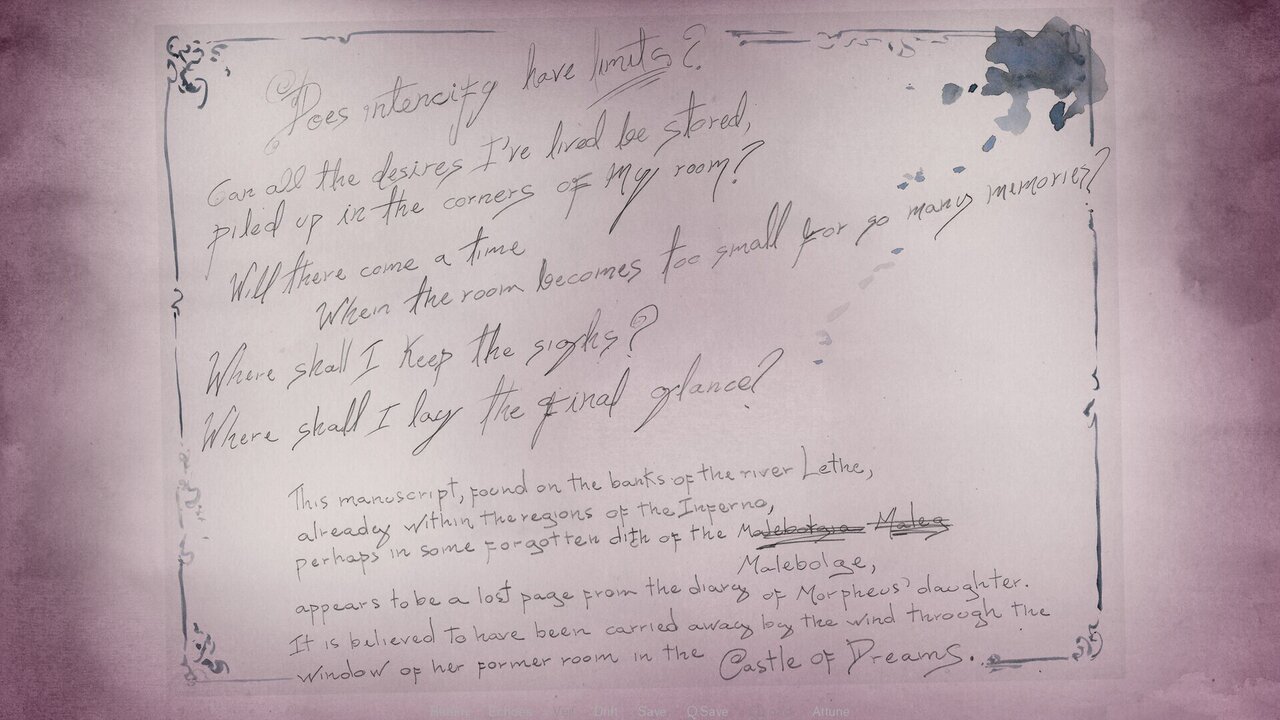 Does intencity have limits?
Can all the desires I've lived be stored,
piled up in the corners of my room?
Will there come a time
When the room becomes too small for so many memories?
Where shall I keep the sighs?
Where shall I lay the final glance?
This manuscript, found on the banks of the river Lethe,
already within the regions of the Inferno,
perhaps in some forgotten dith of the Malebolgia Malea
Malebolge,
appears to be a lost page from the diary of Morpheus' daughter.
It is believed to have been carried away by the wind through the
window of her former room in the Castle of Dreams.
History Echoes Veil Drift Save Q.Save Attune